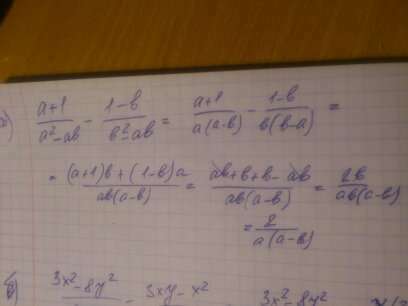 а) (a+1)/(a²-ab) - (1-b)/(b²-ab) = (a+1)/(a(a-b)) - (1-b)/(b(b-a)) =
= ((a+1)b+(1-b)a)/(ab(a-b)) = (ab+b+b-ab)/(ab(a-b)) = 2b/(ab(a-b))
= 2/(a(a-b))
б) 3x²-8y² - 3xy-x² 3x²-8y²